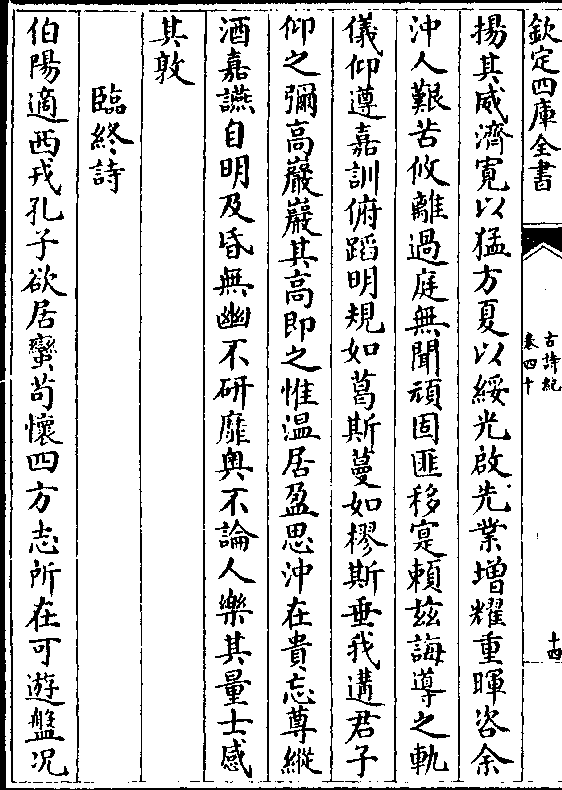 欽定四庫全書
古詩紀
卷四十
十四
揚其威濟寛以猛方夏以綏光啟先業増耀重暉咨余
沖人艱苦攸離過庭無聞頑固匪移寔賴兹誨導之軌
儀仰遵嘉訓俯蹈明規如葛斯蔓如樛斯垂我遘君子
仰之彌高巖巖其高即之惟温居盈思沖在貴忘尊縱
酒嘉讌自明及昏無幽不研靡奥不論人樂其量士感
其敦
臨終詩
伯陽適西戎孔子欲居蠻茍懷四方志所在可遊盤况